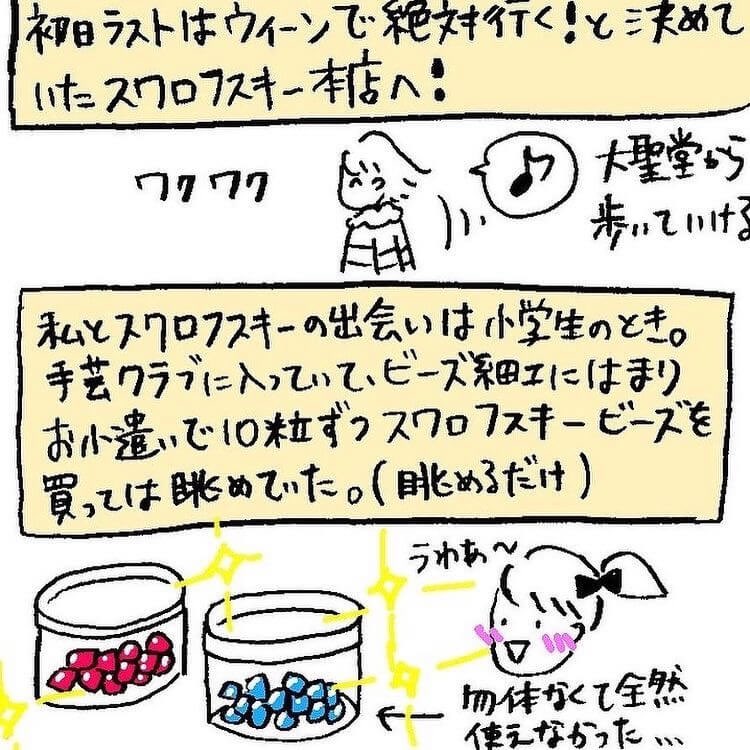 初日ラストはウィーンで絶対行く！と決めて
いたスワロフスキー本店へ！
ワクワク
大聖堂から
歩いていける
私とスワロフスキーの出会いは小学生のとき。
手芸クラブに入っていて、ビーズ細工にはまり
お小遣いで10粒ずつスワロフスキービーズを
買っては眺めていた。(眺めるだけ)
うわあ〜
勿体なくて全然
使えなかった…